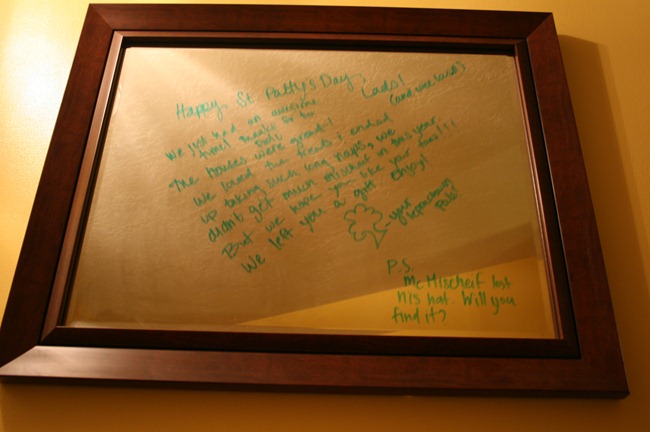 Happy St Patty's Day, Lads!
(and one lass)
We just had an awesome
time! thanks so to
The houses were great!
We loved the treats & ended
up taking such long naps, we
didn't get much mischief in this year.
But we hope you like your !!!
We left you a gift enjoy!
- your
leprechaun
Pals!
P.S.
McMischeif lost
his hat. Will you
find it?